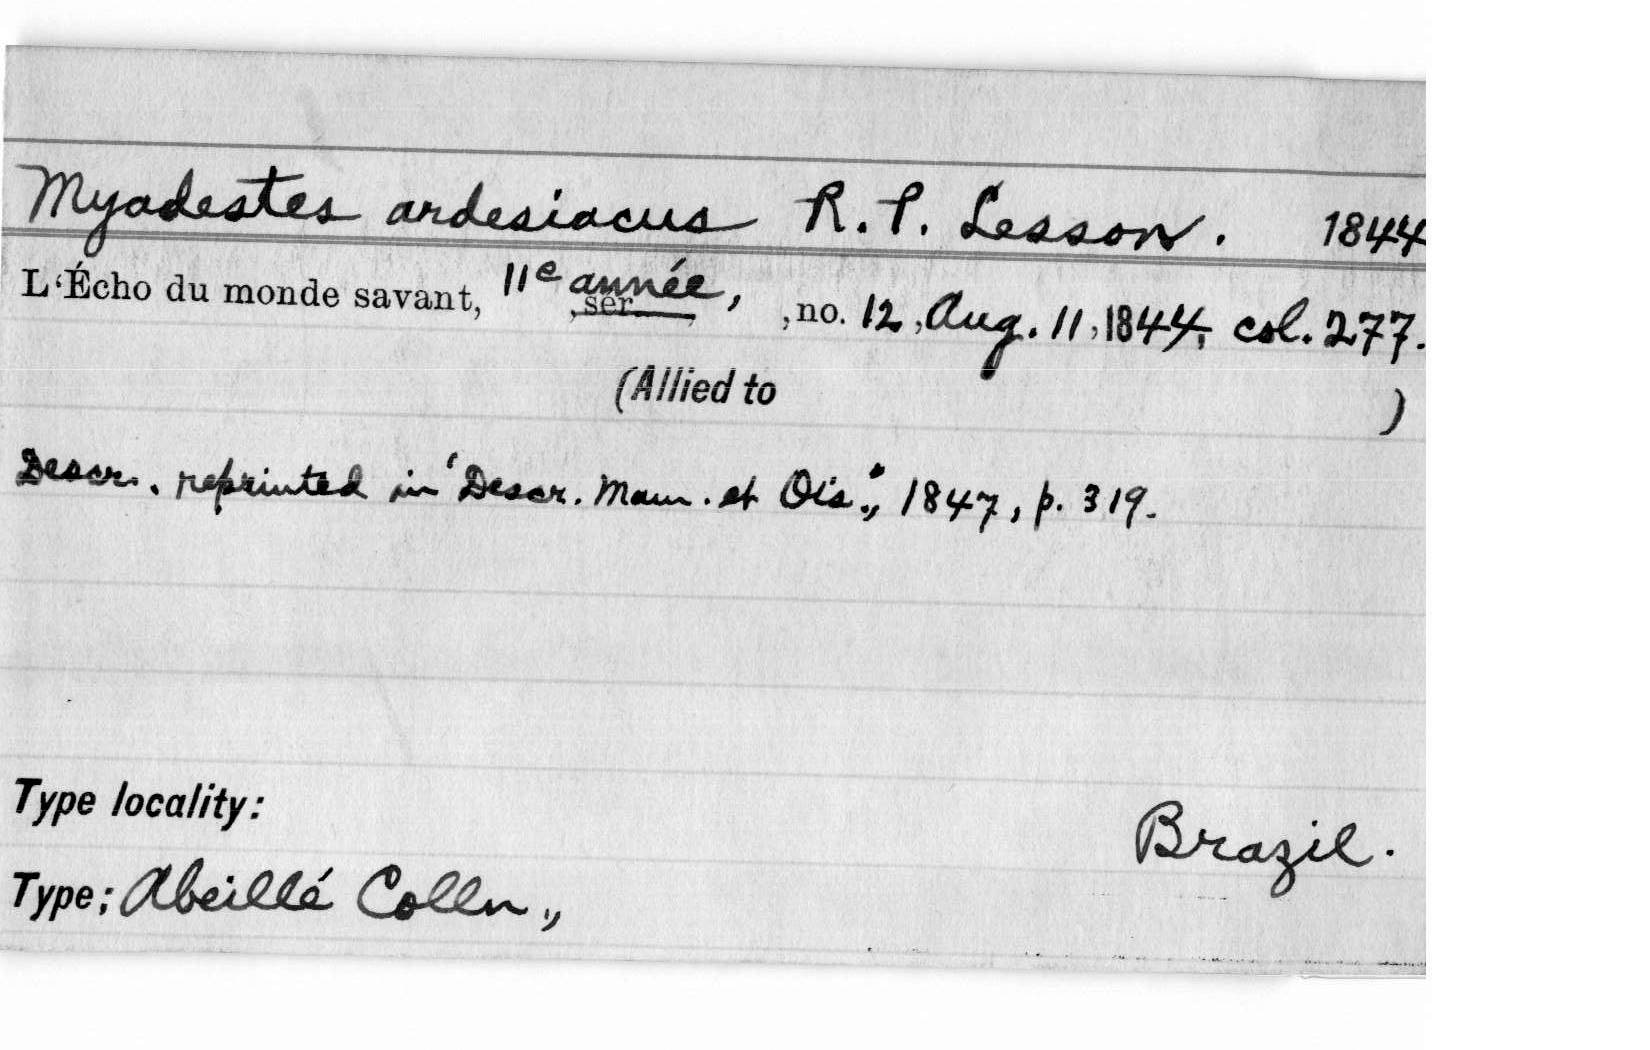 Myadestes ardesiacus R. P. Lesson. 1844
L‘Écho du monde savant, 11e année, , ser , , no. 12, Aug. 11, 1844, col. 277.
(Allied to )
Descr. reprinted in ‘Descr. Mam. et Ois.’, 1847, p. 319.
Type locality:
Brazil.
Type; Abeillé Colln.,